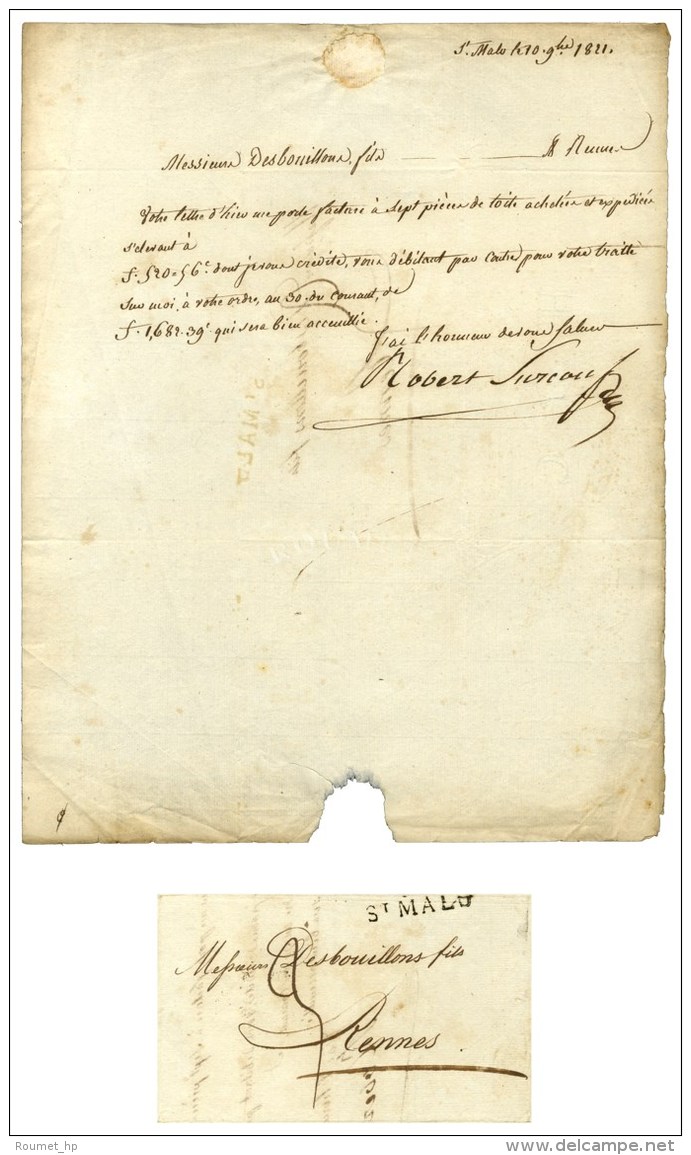 St. Malo le 10. 9bre 1821.
Messieurs Desbouillons, fils à Rennes
Votre lettre d'hier me porte facture à sept pièces de toile achetées et expediées
s'elevant à
f. 520.56c. dont je vous crédite, vous débitant par contre pour votre traitte
sur moi, à votre ordre, au 30. du courant, de
f. 1,682.39c. qui sera bien accueillie.
J'ai l'honneur de vous saluer
Robert Surcouf
St MALO
Messieurs Desbouillons fils
Rennes.
Roumet_hp
delcampe.net